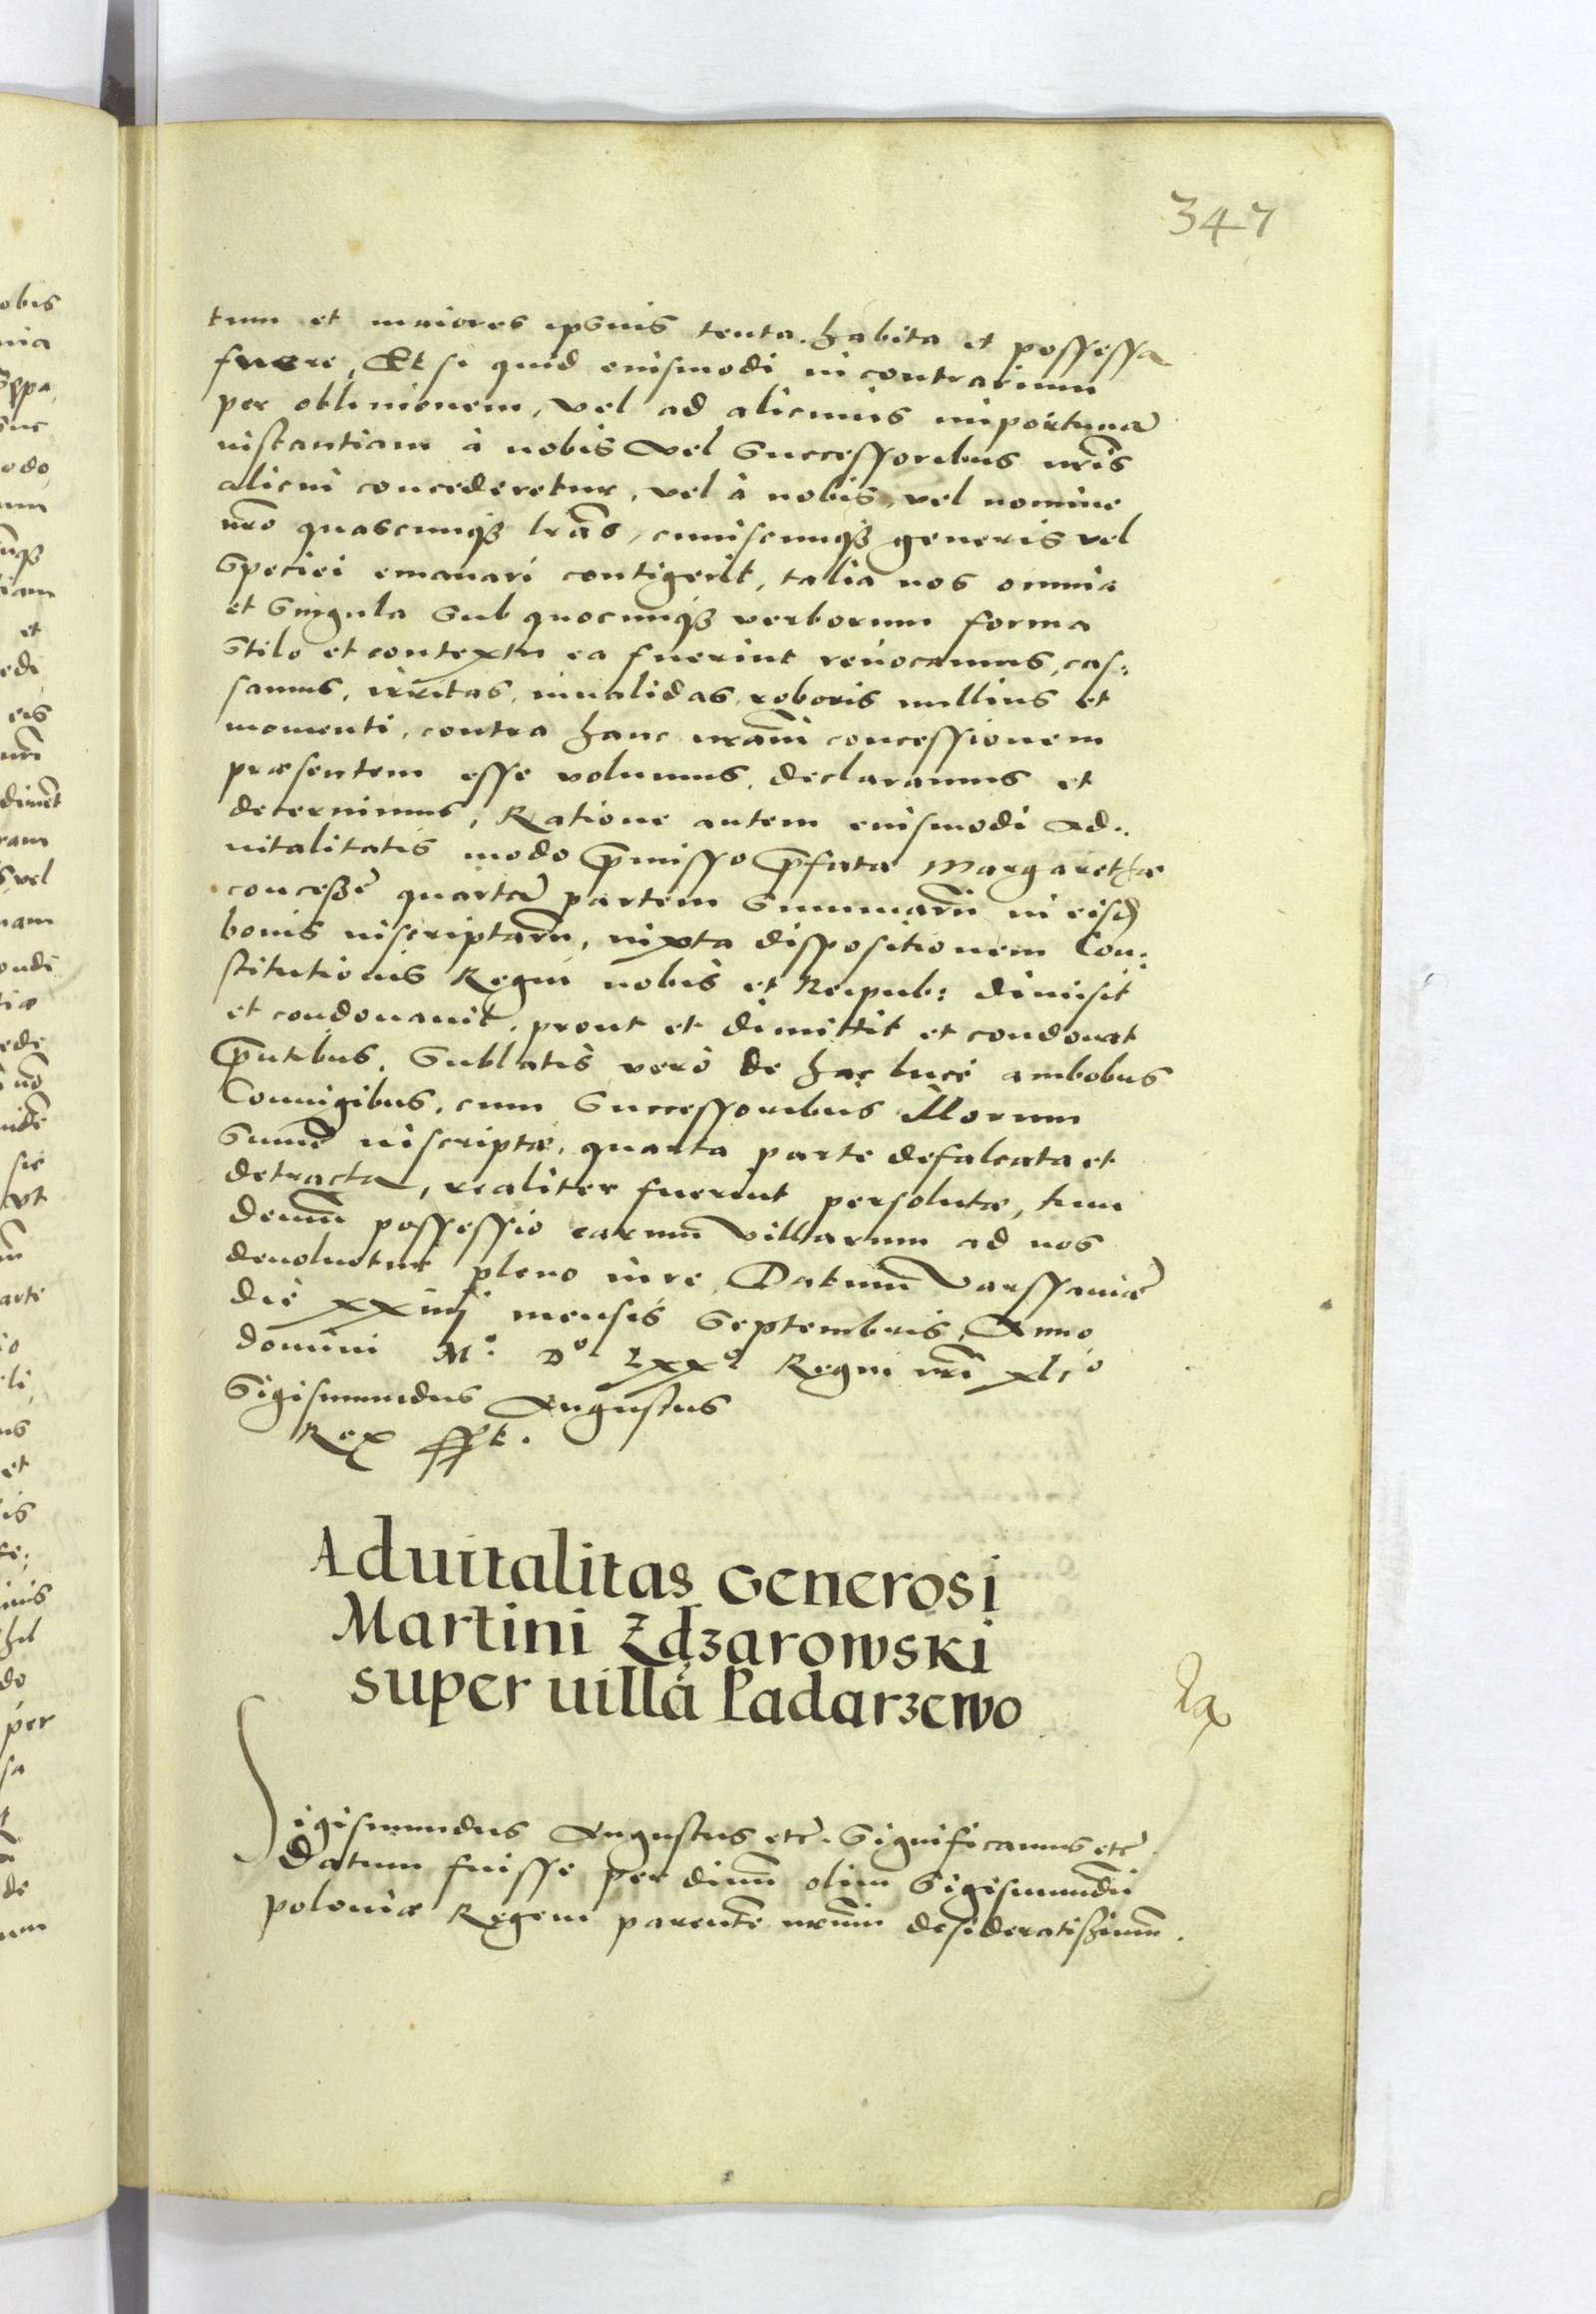 347
tum et maiores ipsius tenta. habita et possessa
fuere, Et si quid eiusmodi in contrarium
per obliuionem, vel ad alicuius importunā
instantiam à nobis vel Successoribus nr̃is
alicui concederetur, vel à nobis, vel nomine
nr̃o quascunqȝ lr̃as, cuiuscunqȝ generis vel
Speciei emanari contigerit, talia nos omnia
et Singula Sub quocunqȝ verborum forma
Stilo et contextu ea fuerint reuocamus, cas:
samus, irritas, inualidas, roboris nullius et
momenti, contra hanc nr̃am concessionem
præsentem esse volumus, declaramus et
decernimus, Ratione autem eiusmodi Ad:
uitalitatis modo p̄misso p̄fata Margarethæ
concessę̄ quartā partem Summarū in eisd
bonis inscriptarū, iuxta dispositionem Con:
stitutionis Regni nobis et Reipub: dimisit
et condonauit, prout et dimittit et condonat
p̄ntibus. Sublatis verò de hac luce ambobus
Coniugibus, cum Successoribus illorum
Summę inscriptæ, quarta parte defalcata et
detracta, realiter fuerint persolutæ, tum
demū possessio earum villarum ad nos
deuoluetur pleno iure, Datum Varssauiæ
die xxiiij mensis Septembris, Anno
domini Mº Dº Lxxº Regni nr̃i xljº
Sigismundus Augustus
Rex sspt.
Aduitalitas Generosi
Martini Zdzarowski
super uillā Padarzewo
Sigismundus Augustus etc̄. Significamus etc̄
Datum fuisse per diuū olim Sigismundū
poloniæ Regem parentē nr̃um desideratissimū.